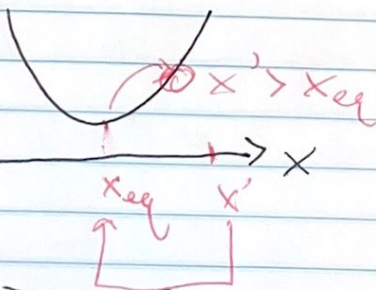 x' > x_eq
x
x_eq x'